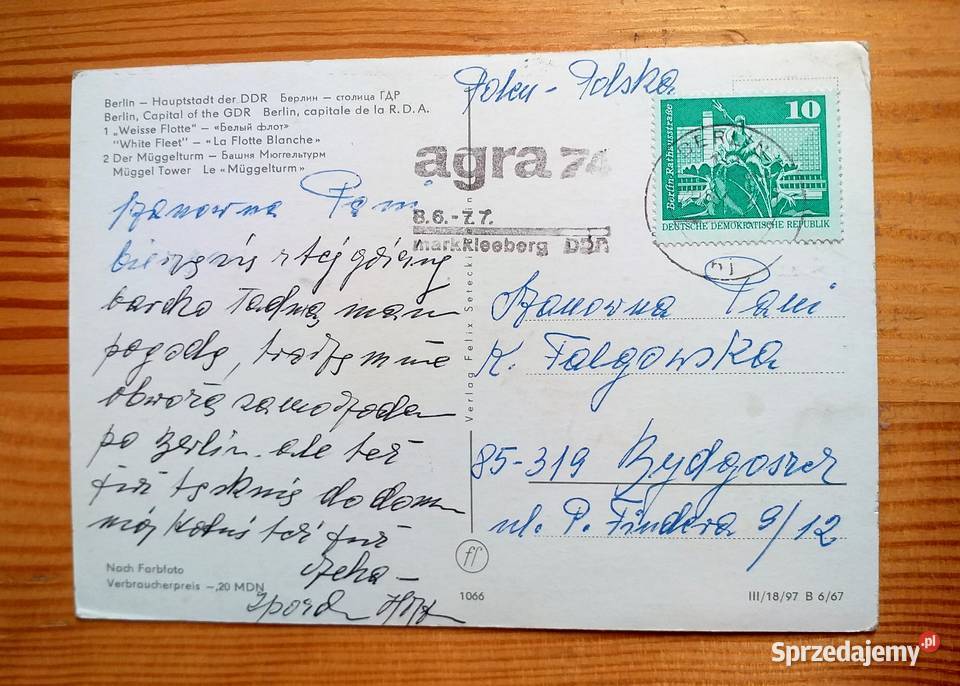 Berlin – Hauptstadt der DDR Берлин – столица ГДР
Berlin, Capital of the GDR Berlin, capitale de la R.D.A.
1 „Weisse Flotte" – «Белый флот»
"White Fleet" – «La Flotte Blanche»
2 Der Müggelturm – Башня Мюггельтурм
Müggel Tower Le «Müggelturm»
Szanowna Pani
bardzo ładną mam
pogodę,
po Berlin. ale też
już tęsknię do dom
mój też już
czeka –
Nach Farbfoto
Verbraucherpreis –,20 MDN
Verlag Felix Setecki
1066
ff
Polen – Polska
agra 74
8.6.-7.7.
markkleeberg DDR
BERLIN
10
Berlin-Rathausstraße
DEUTSCHE DEMOKRATISCHE REPUBLIK
Szanowna Pani
K. Falgowska
85-319 Bydgoszcz
ul. P. Findera 9/12
III/18/97 B 6/67
Sprzedajemy.pl